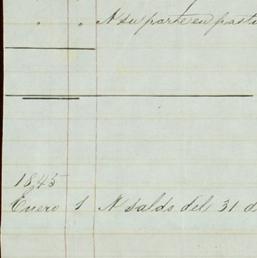 " " A su parte en
1845
Enero 1 A saldo del 31 d